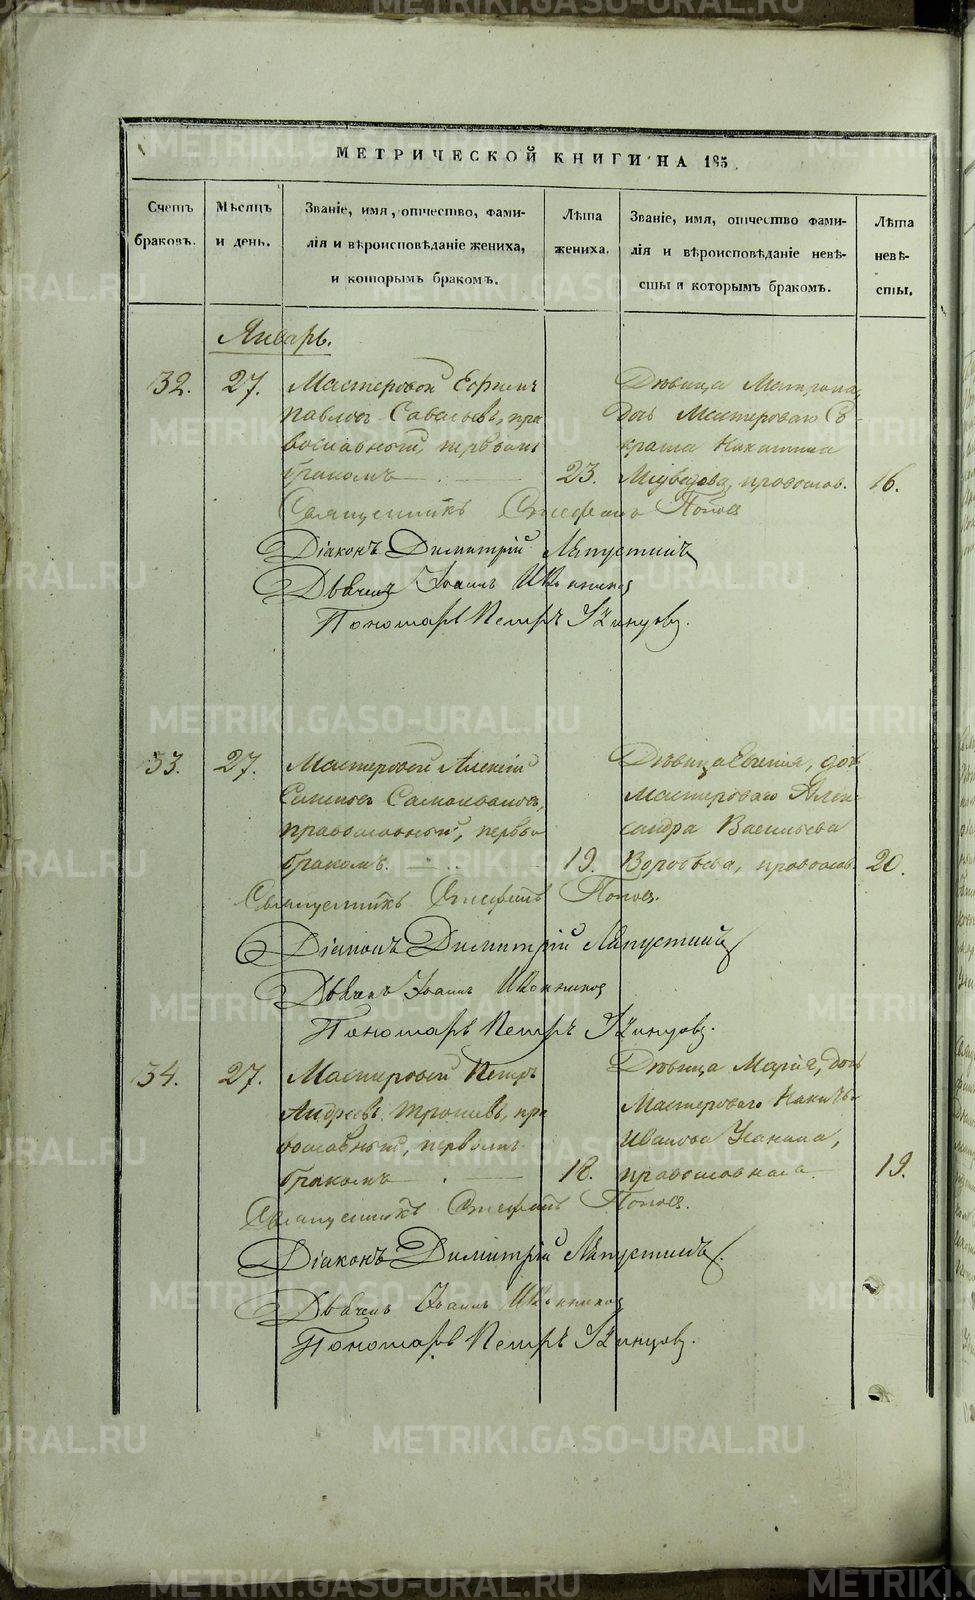 МЕТРИЧЕСКОЙ КНИГИ НА 185
Счетъ браковъ.
Мѣсяцъ и день.
Званіе, имя, отчество, фами-
лія и вѣроисповѣданіе жениха,
и которымъ бракомъ.
Лѣта
жениха.
Званіе, имя, отчество фами-
лія и вѣроисповѣданіе невѣ-
сты и которымъ бракомъ.
Лѣта
невѣ-
сты.
Январь.
32. 27. Мастеровой Ефимъ
Павловъ Савельевъ, пра
вославный, первымъ
бракомъ 23.
Дѣвица Матрона,
дочь Мастероваго
Никитина
православ. 16.
Священникъ Стефанъ Поповъ
Діаконъ Димитрій Ляпустинъ
Дьячекъ Іоаннъ Иконниковъ
Пономарь Петръ
33. 27. Мастеровой Алексій
Семеновъ Самохваловъ,
православный, первымъ
бракомъ. 19.
Дѣвица Евгенія, дочь
Мастероваго Алек-
сандра Васильева
Воробьева, православ. 20.
Священникъ Стефанъ Поповъ.
Діаконъ Димитрій Ляпустинъ
Дьячекъ Іоаннъ Иконниковъ
Пономарь Петръ
34. 27. Мастеровой Петръ
Андреевъ пра
вославный, первымъ
бракомъ 18.
Дѣвица Марія, дочь
Мастероваго
Иванова
православная 19.
Священникъ Стефанъ Поповъ.
Діаконъ Димитрій Ляпустинъ.
Дьячекъ Іоаннъ Иконниковъ
Пономарь Петръ
METRIKI.GASO-URAL.RU